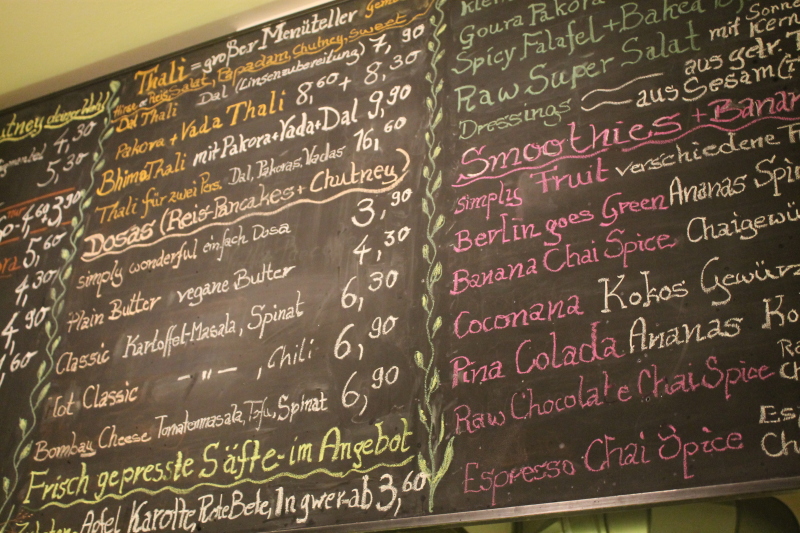 utney
4,30
5,30
4,60 3,90
5,60
4,30
4,90
,60
Thali = großer Menüteller
Salat, Papadam, Chutney, Sweet
Dal Thali Dal (Linsenzubereitung) 7,90
Pakora + Vada Thali 8,60 + 8,30
Bhima Thali mit Pakora+Vada+Dal 9,90
Thali für zwei Pers. Dal, Pakoras, Vadas 16,60
Dosas (Reis-Pancakes + Chutney)
simply wonderful einfach Dosa 3,90
Plain Butter vegane Butter 4,30
Classic Kartoffel-Masala, Spinat 6,30
Hot Classic — " — , Chili 6,90
Bombay Cheese Tomatenmasala, Tofu, Spinat 6,90
Frisch gepresste Säfte - im Angebot
Apfel Karotte, Rote Bete, Ingwer - ab 3,60
Goura Pakora
Spicy Falafel + Baked
Raw Super Salat mit Sonne
Kern
Dressings aus getr. T
aus Sesam
Smoothies + Banan
simply Fruit verschiedene F
Berlin goes Green Ananas Spin
Banana Chai Spice Chaigewü
Coconana Kokos Gewürz
Pina Colada Ananas Ko
Raw Chocolate Chai Spice Ra
Ch
Espresso Chai Spice Esp
Ch